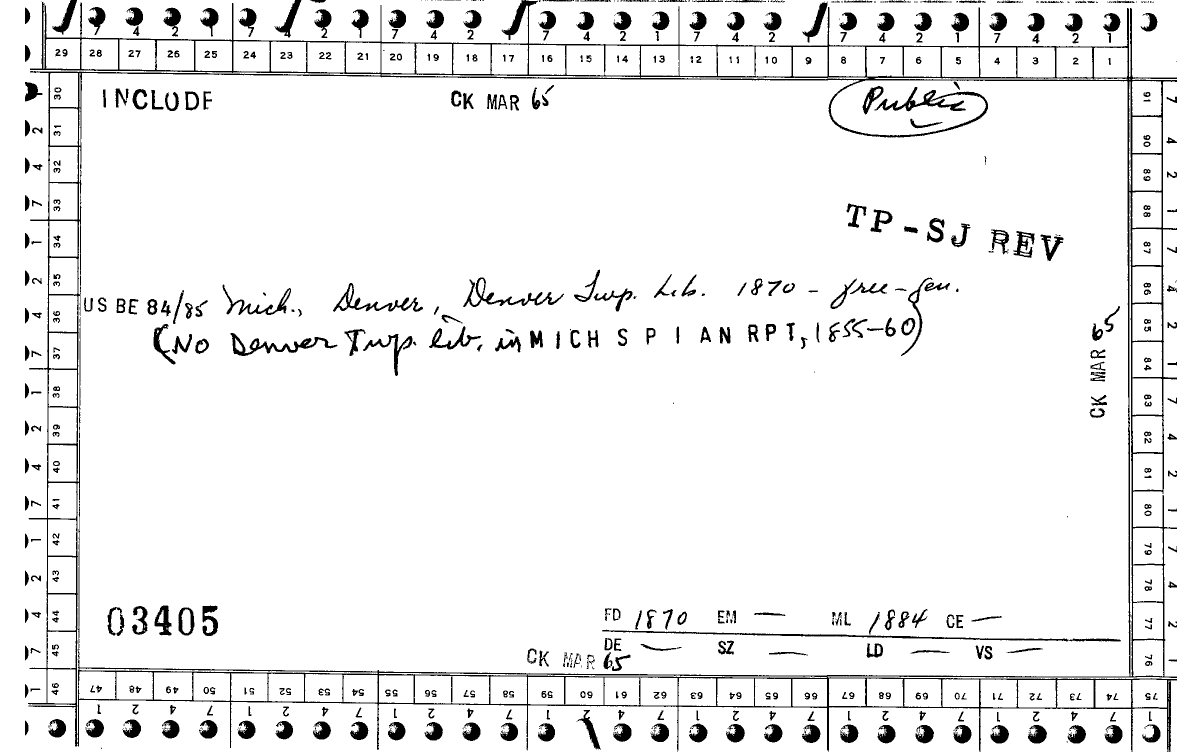 7 4 2 1 7 4 2 1 7 4 2 1 7 4 2 1 7 4 2 1 7 4 2 1 7 4 2 1
29 28 27 26 25 24 23 22 21 20 19 18 17 16 15 14 13 12 11 10 9 8 7 6 5 4 3 2 1
INCLUDE CK MAR 65 Public
TP-SJ REV
US BE 84/85 Mich., Denver, Denver Twp. Lib. 1870 - free-gen.
(No Denver Twp. Lib. in MICH S P I AN RPT, 1855-60)
CK MAR 65
03405
FD 1870 EM — ML 1884 CE —
DE — SZ — LD — VS —
CK MAR 65
30 31 32 33 34 35 36 37 38 39 40 41 42 43 44 45 46
91 90 89 88 87 86 85 84 83 82 81 80 79 78 77 76
47 48 49 50 51 52 53 54 55 56 57 58 59 60 61 62 63 64 65 66 67 68 69 70 71 72 73 74 75
1 2 4 7 1 2 4 7 1 2 4 7 1 2 4 7 1 2 4 7 1 2 4 7 1 2 4 7 1